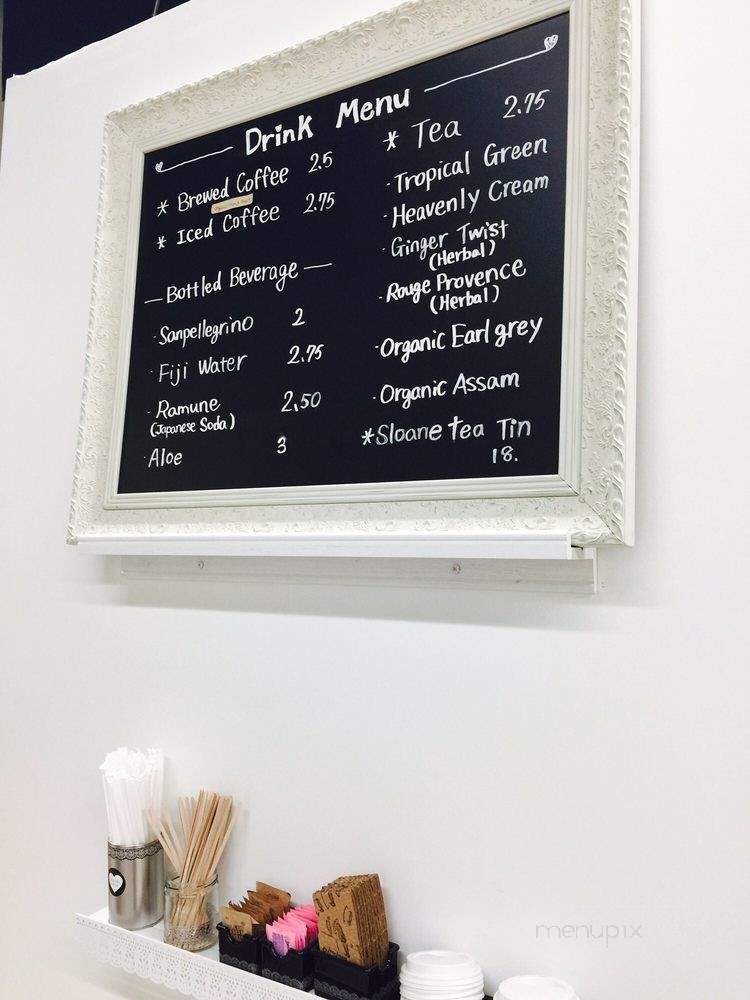 Drink Menu
* Brewed Coffee 2.5
* Iced Coffee 2.75
Bottled Beverage
· Sanpellegrino 2
· Fiji Water 2.75
· Ramune 2.50
(Japanese Soda)
· Aloe 3
* Tea 2.75
· Tropical Green
· Heavenly Cream
· Ginger Twist
(Herbal)
· Rouge Provence
(Herbal)
· Organic Earl grey
· Organic Assam
* Sloane tea Tin
18.
menupix